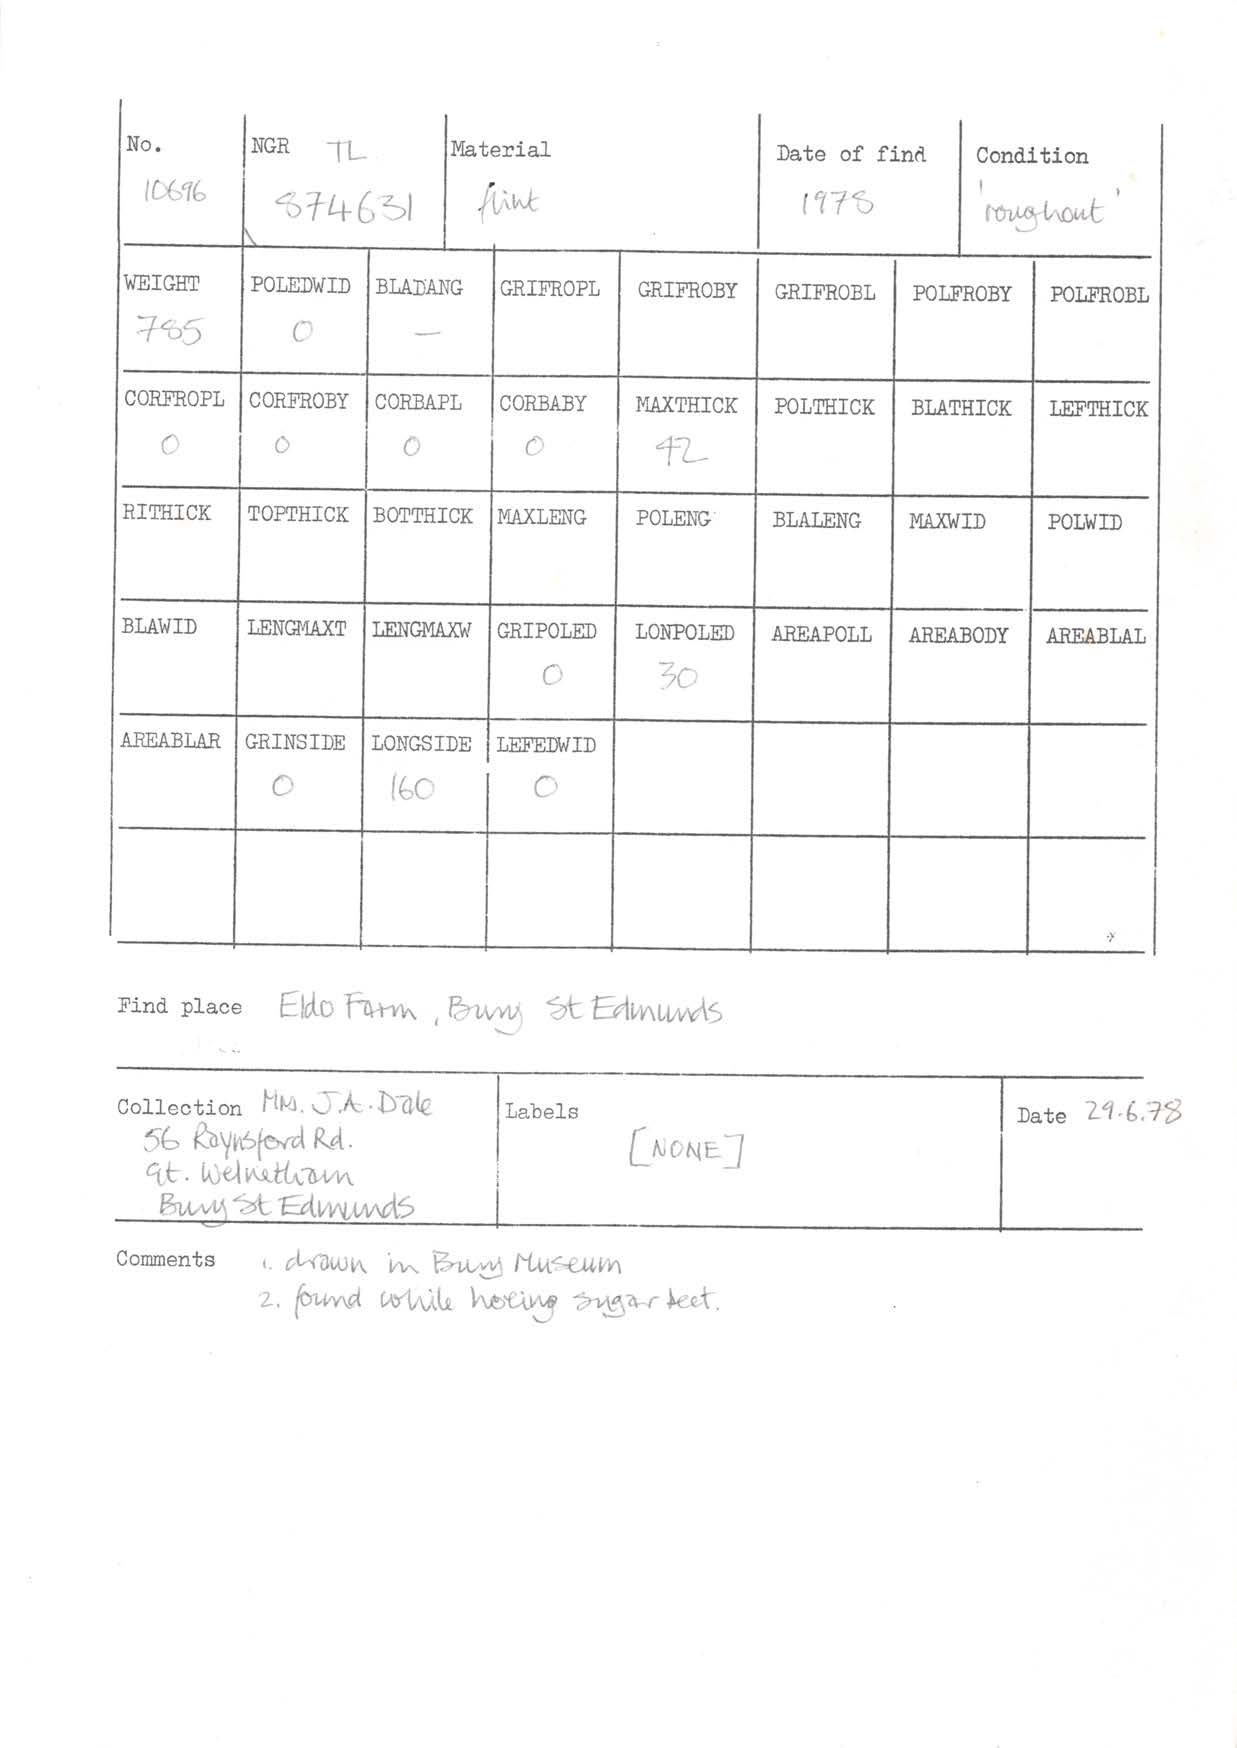 No. NGR TL Material Date of find Condition
10696 874631 flint 1978 'roughout'
WEIGHT POLEDWID BLADANG GRIFROPL GRIFROBY GRIFROBL POLFROBY POLFROBL
785 0 —
CORFROPL CORFROBY CORBAPL CORBABY MAXTHICK POLTHICK BLATHICK LEFTHICK
0 0 0 0 42
RITHICK TOPTHICK BOTTHICK MAXLENG POLENG BLALENG MAXWID POLWID
BLAWID LENGMAXT LENGMAXW GRIPOLED LONPOLED AREAPOLL AREABODY AREABLAL
0 30
AREABLAR GRINSIDE LONGSIDE LEFEDWID
0 160 0
Find place Eldo Farm, Bury St Edmunds
Collection Mrs. J.A. Dale
56 Raynsford Rd.
Gt. Welnetham
Bury St Edmunds
Labels
[NONE]
Date 29.6.78
Comments 1. drawn in Bury Museum
2. found while hoeing sugar beet.